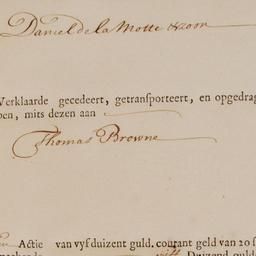 Daniel de la Motte & zoon
Verklaarde gecedeert, getransporteert, en opgedrag
ben, mits dezen aan
Thomas Browne
en Actie van vyf duizent guld. courant geld van 20 s
Duizend guld